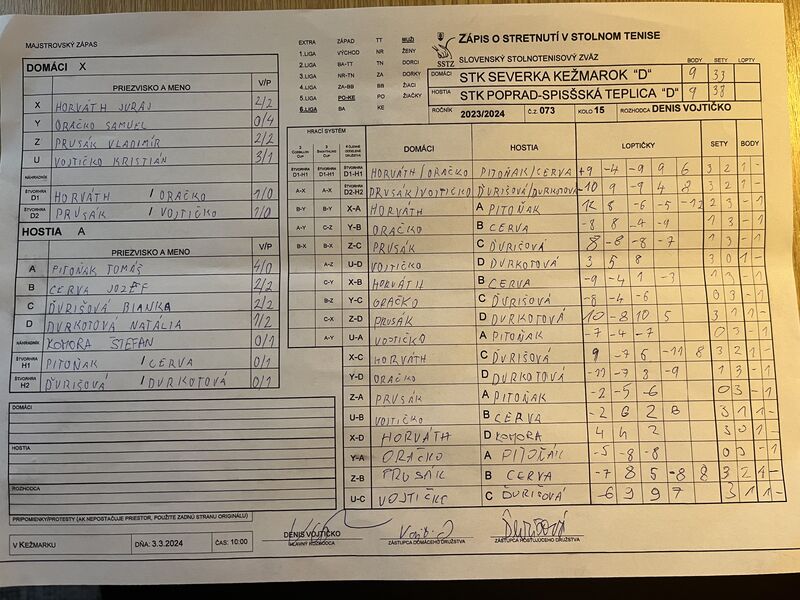 MAJSTROVSKÝ ZÁPAS
EXTRA ZÁPAD TT MUŽI
1.LIGA VÝCHOD NR ŽENY
2.LIGA BA-TT TN DORCI
3.LIGA NR-TN ZA DORKY
4.LIGA ZA-BB BB ŽIACI
5.LIGA PO-KE PO ŽIAČKY
6.LIGA BA KE
SSTZ
ZÁPIS O STRETNUTÍ V STOLNOM TENISE
SLOVENSKÝ STOLNOTENISOVÝ ZVÄZ
BODY SETY LOPTY
DOMÁCI STK SEVERKA KEŽMAROK "D" 9 33
HOSTIA STK POPRAD-SPIŠSKÁ TEPLICA "D" 9 38
ROČNÍK 2023/2024 Č.Z. 073 KOLO 15 ROZHODCA DENIS VOJTIČKO
DOMÁCI X
PRIEZVISKO A MENO V/P
X HORVÁTH JURAJ 2/2
Y ORAČKO SAMUEL 0/4
Z PRUSÁK VLADIMÍR 2/2
U VOJTIČKO KRISTIÁN 3/1
NÁHRADNÍK
ŠTVORHRA D1 HORVÁTH / ORAČKO 1/0
ŠTVORHRA D2 PRUSÁK / VOJTIČKO 1/0
HOSTIA A
PRIEZVISKO A MENO V/P
A PITOŇAK TOMÁŠ 4/0
B CERVA JOZEF 2/2
C ĎURIŠOVÁ BIANKA 2/2
D DVRKOTOVÁ NATÁLIA 1/2
NÁHRADNÍK KOMORA ŠTEFAN 0/1
ŠTVORHRA H1 PITOŇAK / CERVA 0/1
ŠTVORHRA H2 ĎURIŠOVÁ / DVRKOTOVÁ 0/1
DOMÁCI
HOSTIA
ROZHODCA
PRIPOMIENKY/PROTESTY (AK NEPOSTAČUJE PRIESTOR, POUŽITE ZADNÚ STRANU ORIGINÁLU)
V KEŽMARKU DŇA: 3.3.2024 ČAS: 10:00
HRACÍ SYSTÉM DOMÁCI HOSTIA LOPTIČKY SETY BODY
D1-H1 D1-H1 D1-H1 HORVÁTH/ORAČKO PITOŇAK/CERVA +9 -4 -9 9 6 3 2 1 -
A-X A-X D2-H2 PRUSÁK/VOJTIČKO ĎURIŠOVÁ/DVRKOTOVÁ -10 9 -9 4 8 3 2 1 -
B-Y B-Y X-A HORVÁTH A PITOŇAK 12 8 -6 -5 -12 2 3 - 1
A-Y C-Z Y-B ORAČKO B CERVA -8 8 -4 -9 1 3 - 1
B-X B-X Z-C PRUSÁK C ĎURIŠOVÁ 8 -8 -8 -7 1 3 - 1
A-Z U-D VOJTIČKO D DVRKOTOVÁ 3 5 8 3 0 1 -
C-Y X-B HORVÁTH B CERVA -9 -4 1 -3 1 3 - 1
B-Z Y-C ORAČKO C ĎURIŠOVÁ -8 -4 -6 0 3 - 1
C-X Z-D PRUSÁK D DVRKOTOVÁ 10 -8 10 5 3 1 1 -
A-Y U-A VOJTIČKO A PITOŇAK -7 -4 -7 0 3 - 1
X-C HORVÁTH C ĎURIŠOVÁ 9 -7 6 -11 8 3 2 1 -
Y-D ORAČKO D DVRKOTOVÁ -11 -7 3 -9 1 3 - 1
Z-A PRUSÁK A PITOŇAK -2 -5 -6 0 3 - 1
U-B VOJTIČKO B CERVA -2 6 2 8 3 1 1 -
X-D HORVÁTH D KOMORA 4 4 2 3 0 1 -
Y-A ORAČKO A PITOŇÁK -5 -8 -8 0 3 - 1
Z-B PRUSÁK B CERVA -7 8 5 -8 8 3 2 1 -
U-C VOJTIČKO C ĎURIŠOVÁ -6 9 9 7 3 1 1 -
DENIS VOJTIČKO
HLAVNÝ ROZHODCA
ZÁSTUPCA DOMÁCEHO DRUŽSTVA
ZÁSTUPCA HOSŤUJÚCEHO DRUŽSTVA